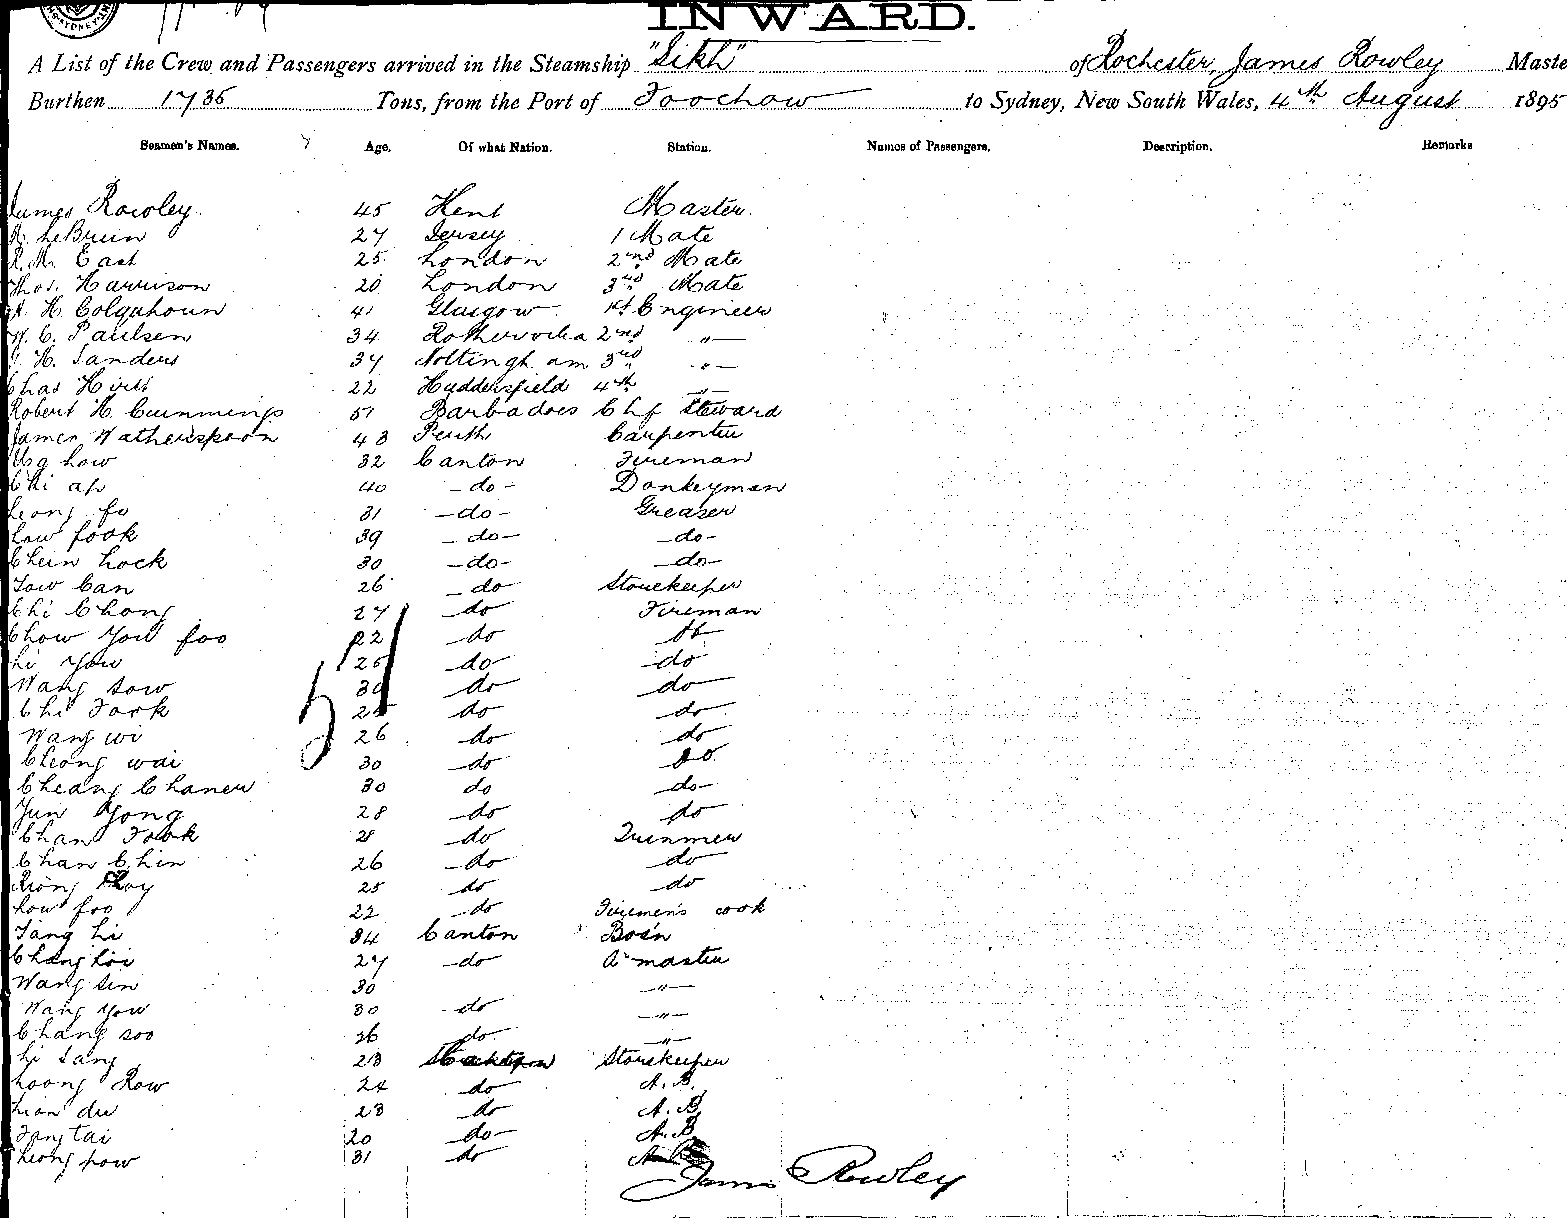 INWARD.
A List of the Crew and Passengers arrived in the Steamship "Sikh" of Rochester, James Rowley Maste
Burthen 1735 Tons, from the Port of Foochow to Sydney, New South Wales, 4th August 1895
Seamen's Names. Age. Of what Nation. Station. Names of Passengers. Description. Remarks
James Rowley 45 Kent Master.
LeBruin 27 Jersey 1 Mate
R. M. East 25 London 2nd Mate
Thos. Harrison 20 London 3rd Mate
H. Colquhoun 41 Glasgow 1st Engineer
C. Paulsen 34 2nd -"-
H. Sanders 37 Nottingham 3rd -"-
Chas Hirst 22 Huddersfield 4th -"-
Robert H. Cummings 51 Barbadoes Chf Steward
James Watherspoon 43 Perth Carpenter
how 32 Canton Fireman
Chi ap 40 -do- Donkeyman
Leong fo 31 -do- Greaser
Low fook 39 -do- -do-
Chein hock 30 -do- -do-
Tow Can 26 -do Storekeeper
Chi Chong 27 -do Fireman
Chow You foo 22 -do do
Li You 25 -do -do
Wang sow 30 -do do
Chi Fook -do -do
Wang wi 26 -do do
Cheong wai 30 -do do
Cheang Chanew 30 do do-
Yun Yong 28 -do do
Chan Fook 28 -do
Chan Chin 26 -do do
25 do do
Low foo 22 -do Firemen's cook
Tang Li 34 Canton Bos'n
Chang Loi 27 -do
Wang Sin 30 -"-
Wang You 30 do -"-
Chang soo 26 do -"-
Li Sang 23 Storekeeper
Loong Row 24 do A.B.
23 do A.B.
Fong tai 20 do- A.B
Leong pow 31 do A.B
51
James Rowley